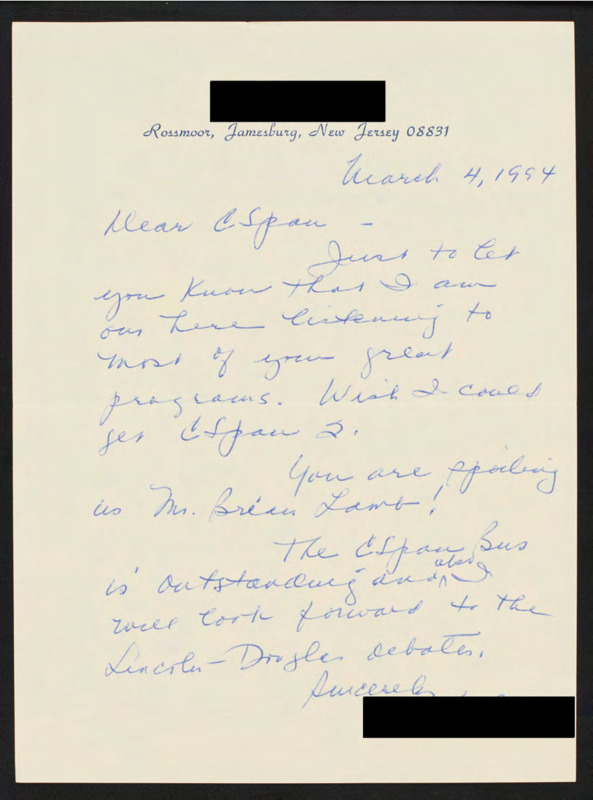 Rossmoor, Jamesburg, New Jersey 08831
March 4, 1994
Dear CSpan -
Just to let
you know that I am
out here listening to
most of your great
programs. Wish I could
get CSpan 2.
You are spoiling
us Mr. Brian Lamb!
The CSpan Bus
is outstanding and also I
will look forward to the
Lincoln-Douglas debates.
Sincerely,